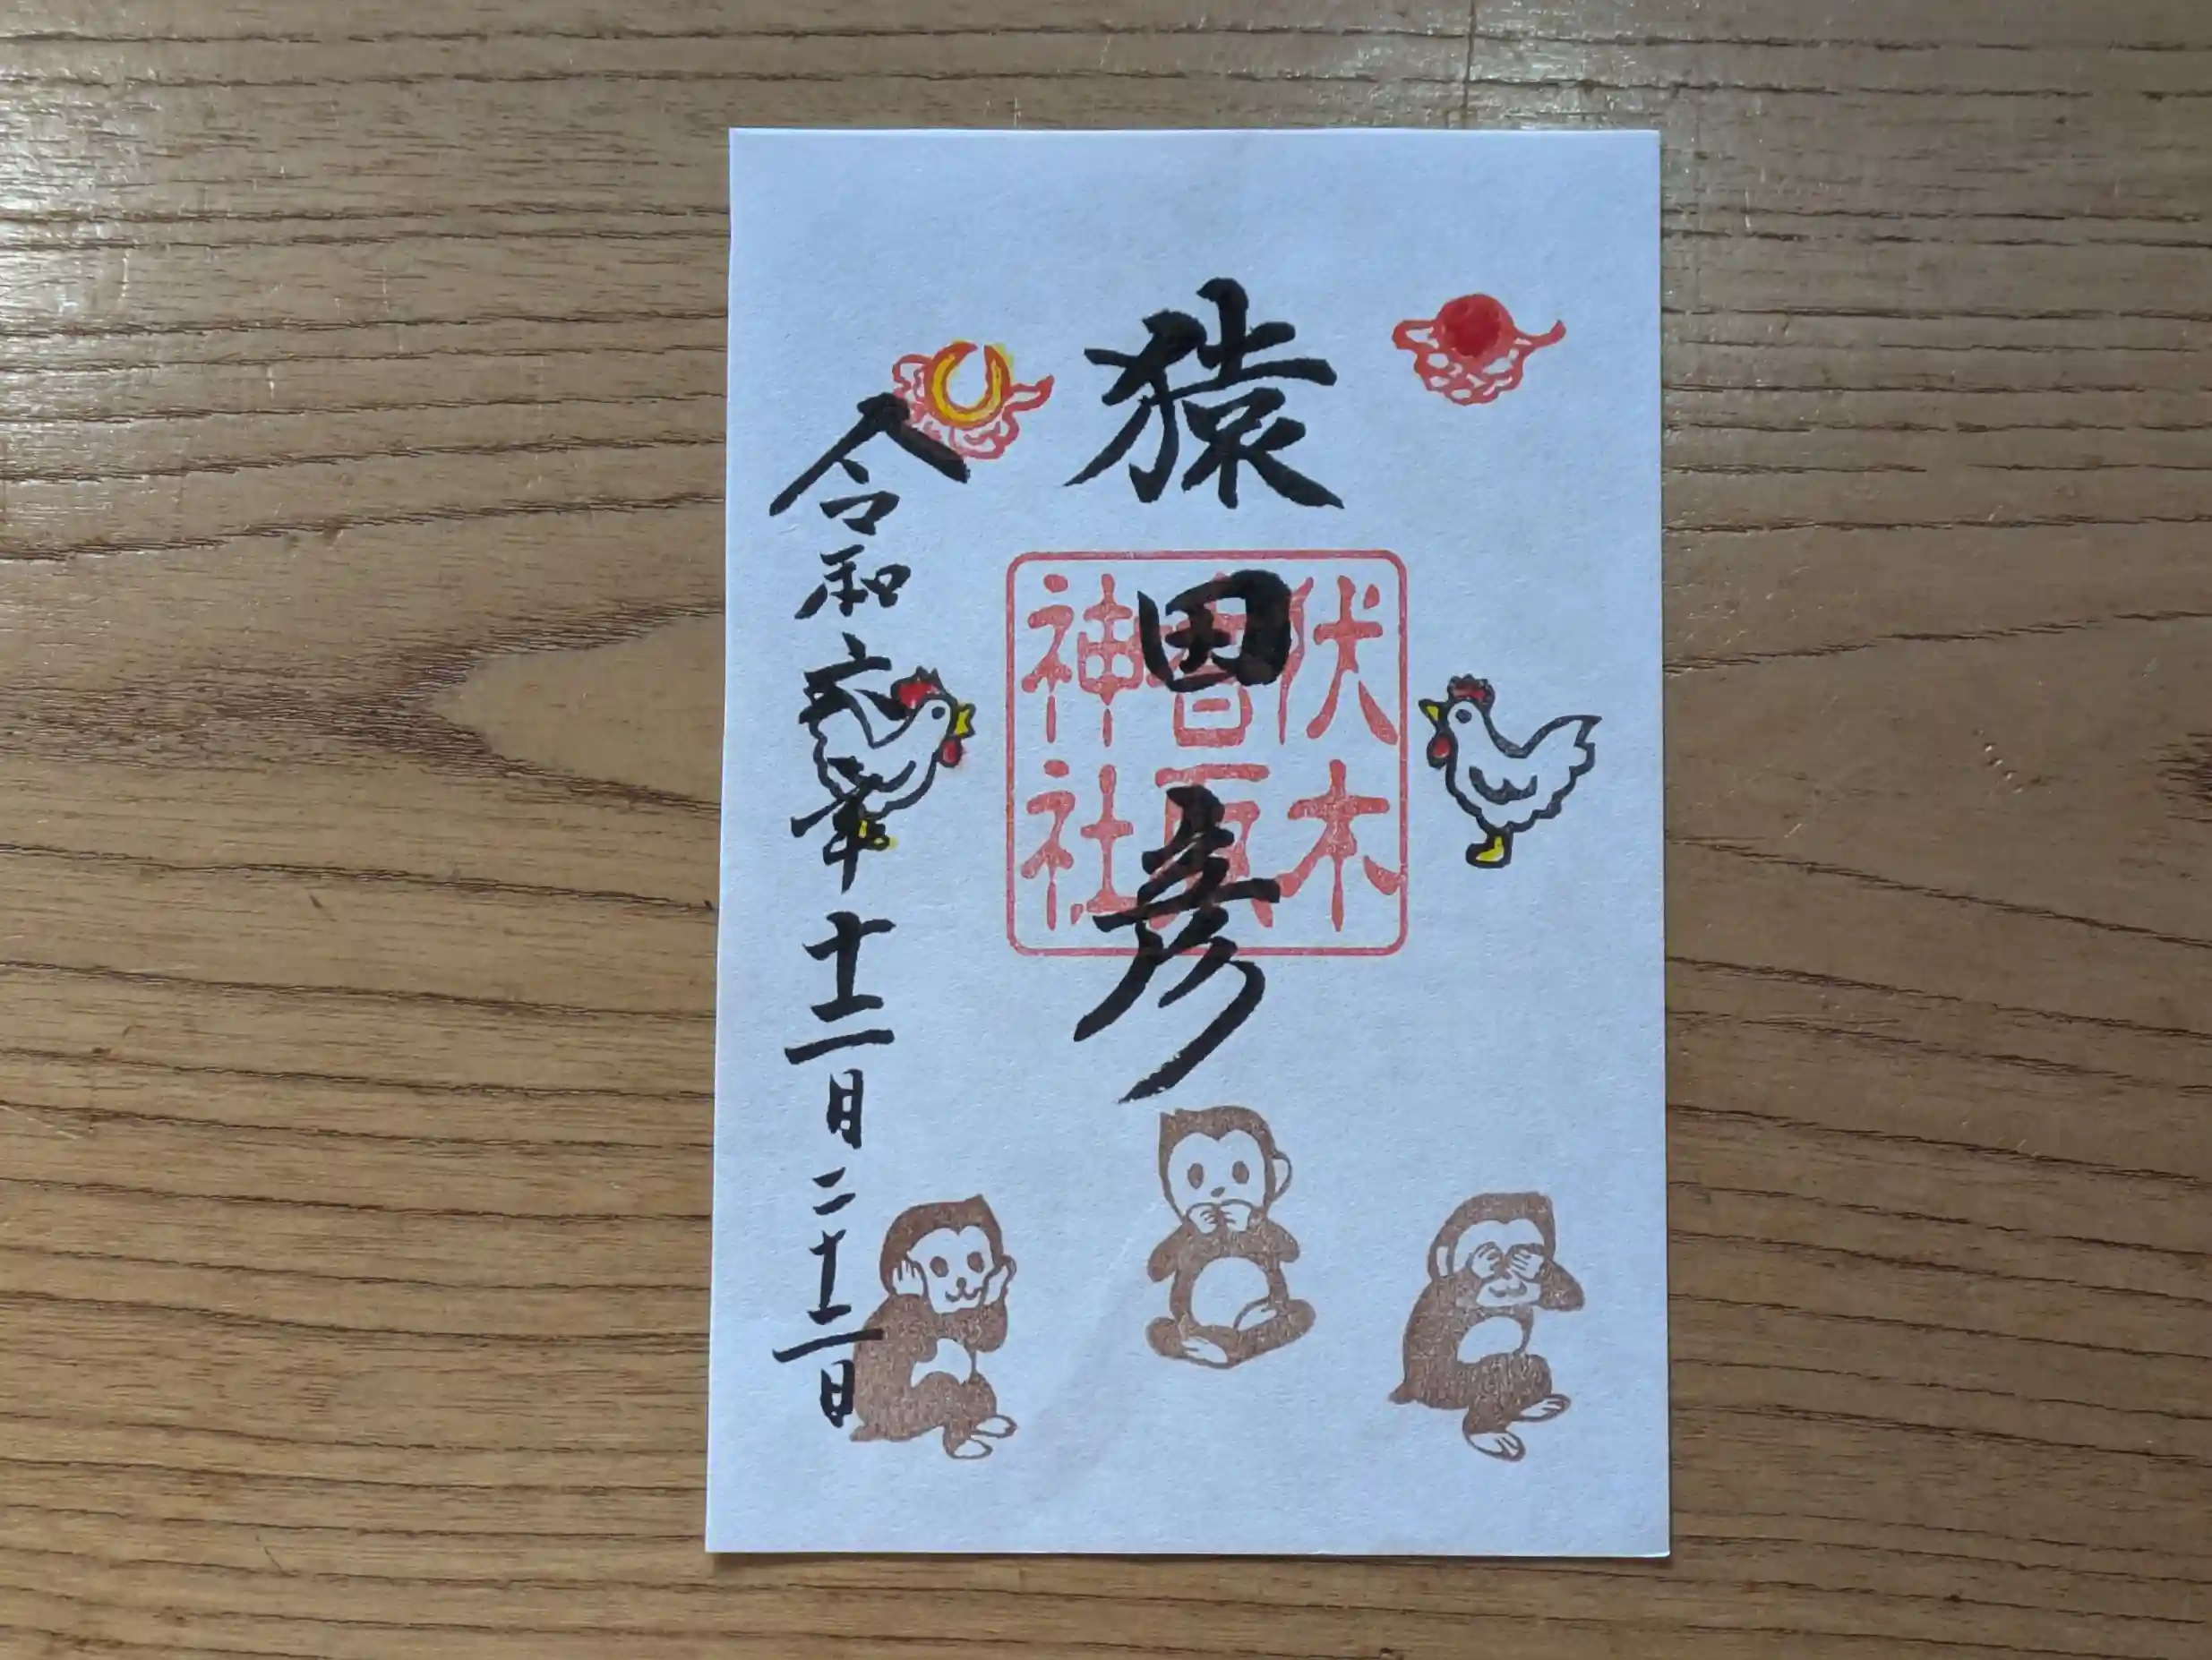 猿田彦
伏木
香取
神社
令和六年十二月二十二日